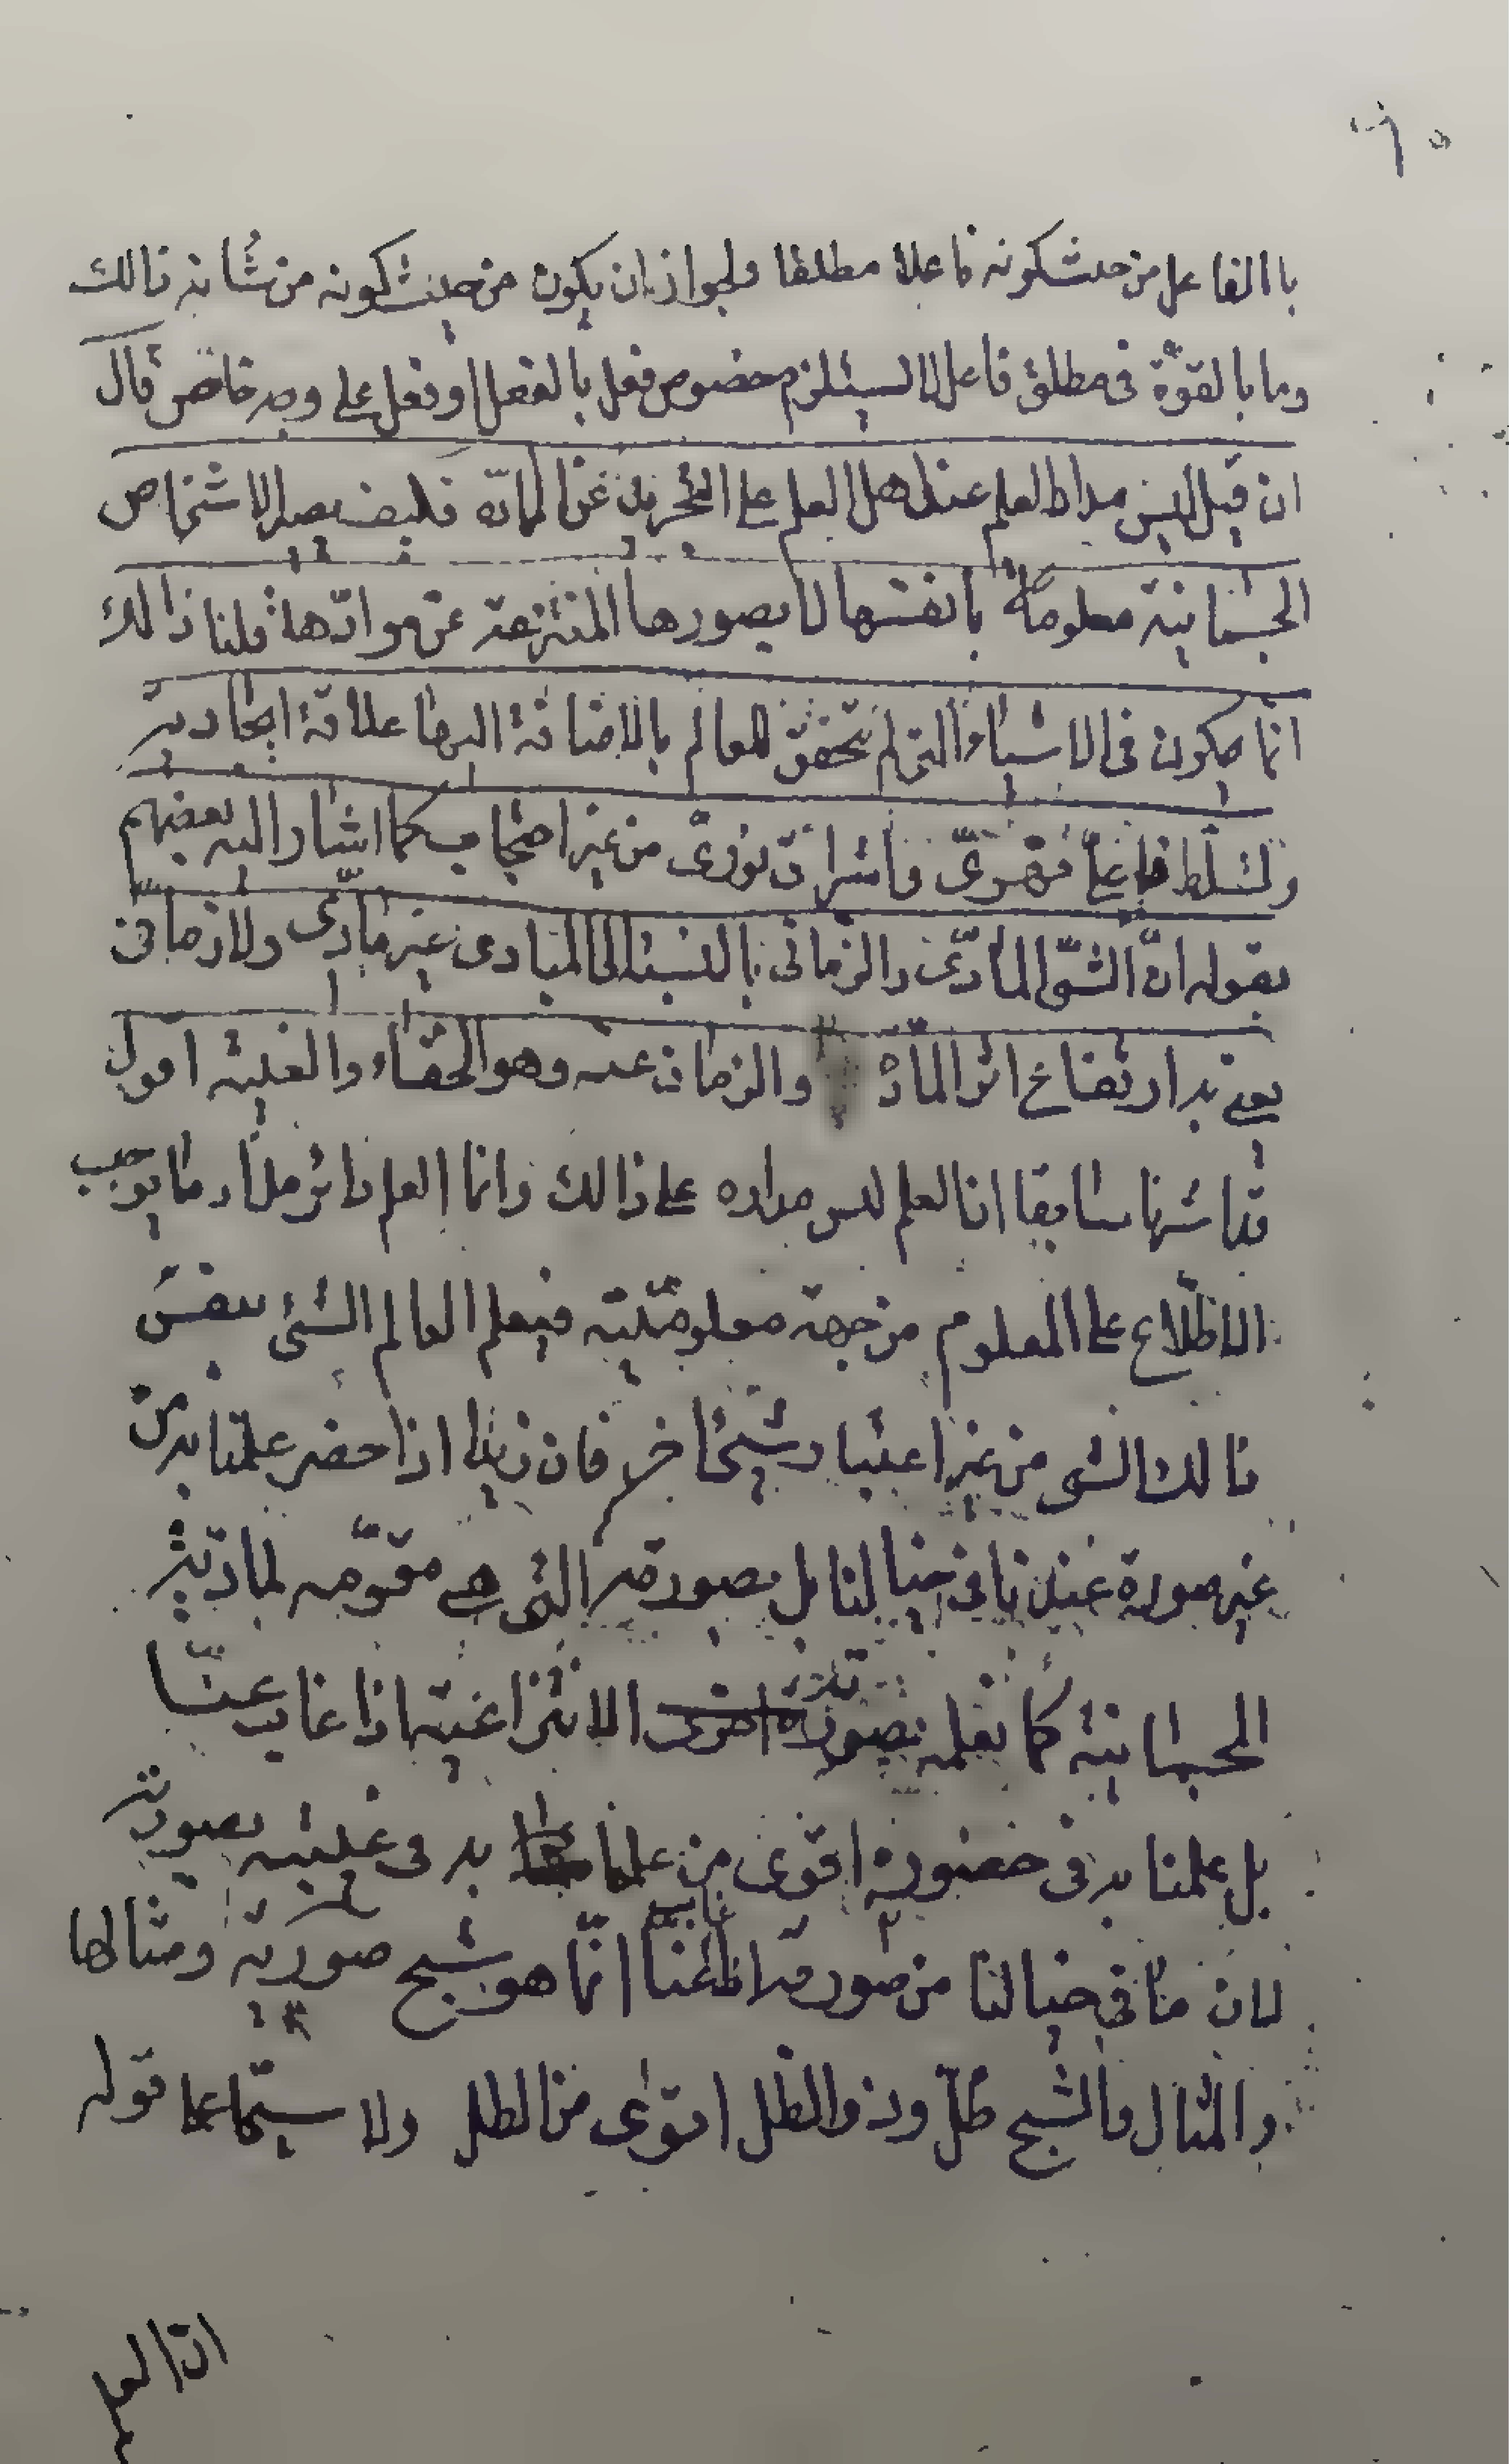 باالفاعل من حيث كونه فاعلا مطلقا ولجوازان يكون من حيث كونه من شانه ذالك
وما بالقوّة فى مطلق فاعل لا يستلزم خصوص فعل بالفعل او فعل على وجه خاص قال
ان قيل اليس مدار العلم عند اهل العلم على التجريد عن المادّه فكيف يصير الاشخاص
الجسمانية معلومة بانفسها لا بصورها المنتزعة عن موادّها قلنا ذالك
انّما يكون فى الاشياء التى لم يتحقق للعالم بالاضافة اليها علاقة ايجادية
وتسلّط فاعلىّ قهرىّ واشراق نورىّ من غير احتجاب كما اشار اليه بعضهم
بقوله انّ الشّئ المادّى والزمانى بالنسبة الى المبادى غير مادّى ولا زمانى
يعنى به ارتفاع اثر المادّة والزمان عنه وهو الخفاء والغيبه اقول
قد اشرنا سابقا ان العلم ليس مداره على ذالك وانما العلم دائر مدار ما يوجب
الاطّلاع على المعلوم من جهة معلوميّته فيعلم العالم الشئ بنفس
ذالك الشئ من غير اعتبار شئ اخر فان زيدا اذا حضر علمنا به من
غير صورة عندنا فى خيالنا بل بصورته التى هى مقوّمه لمادته
الجسمانية كما نعلمه بصورته الانتزاعية اذا غاب عنّا
بل علمنا به فى حضوره اقوى من علمنا به فى غيبته بصورته
لان ما فى خيالنا من صورته اذا غاب عنا انّما هو شبح صورته ومثالها
والمثال والشبح ظلّ وذو الظل اقوى من الظل ولا سيّما على قوله
ان العلم